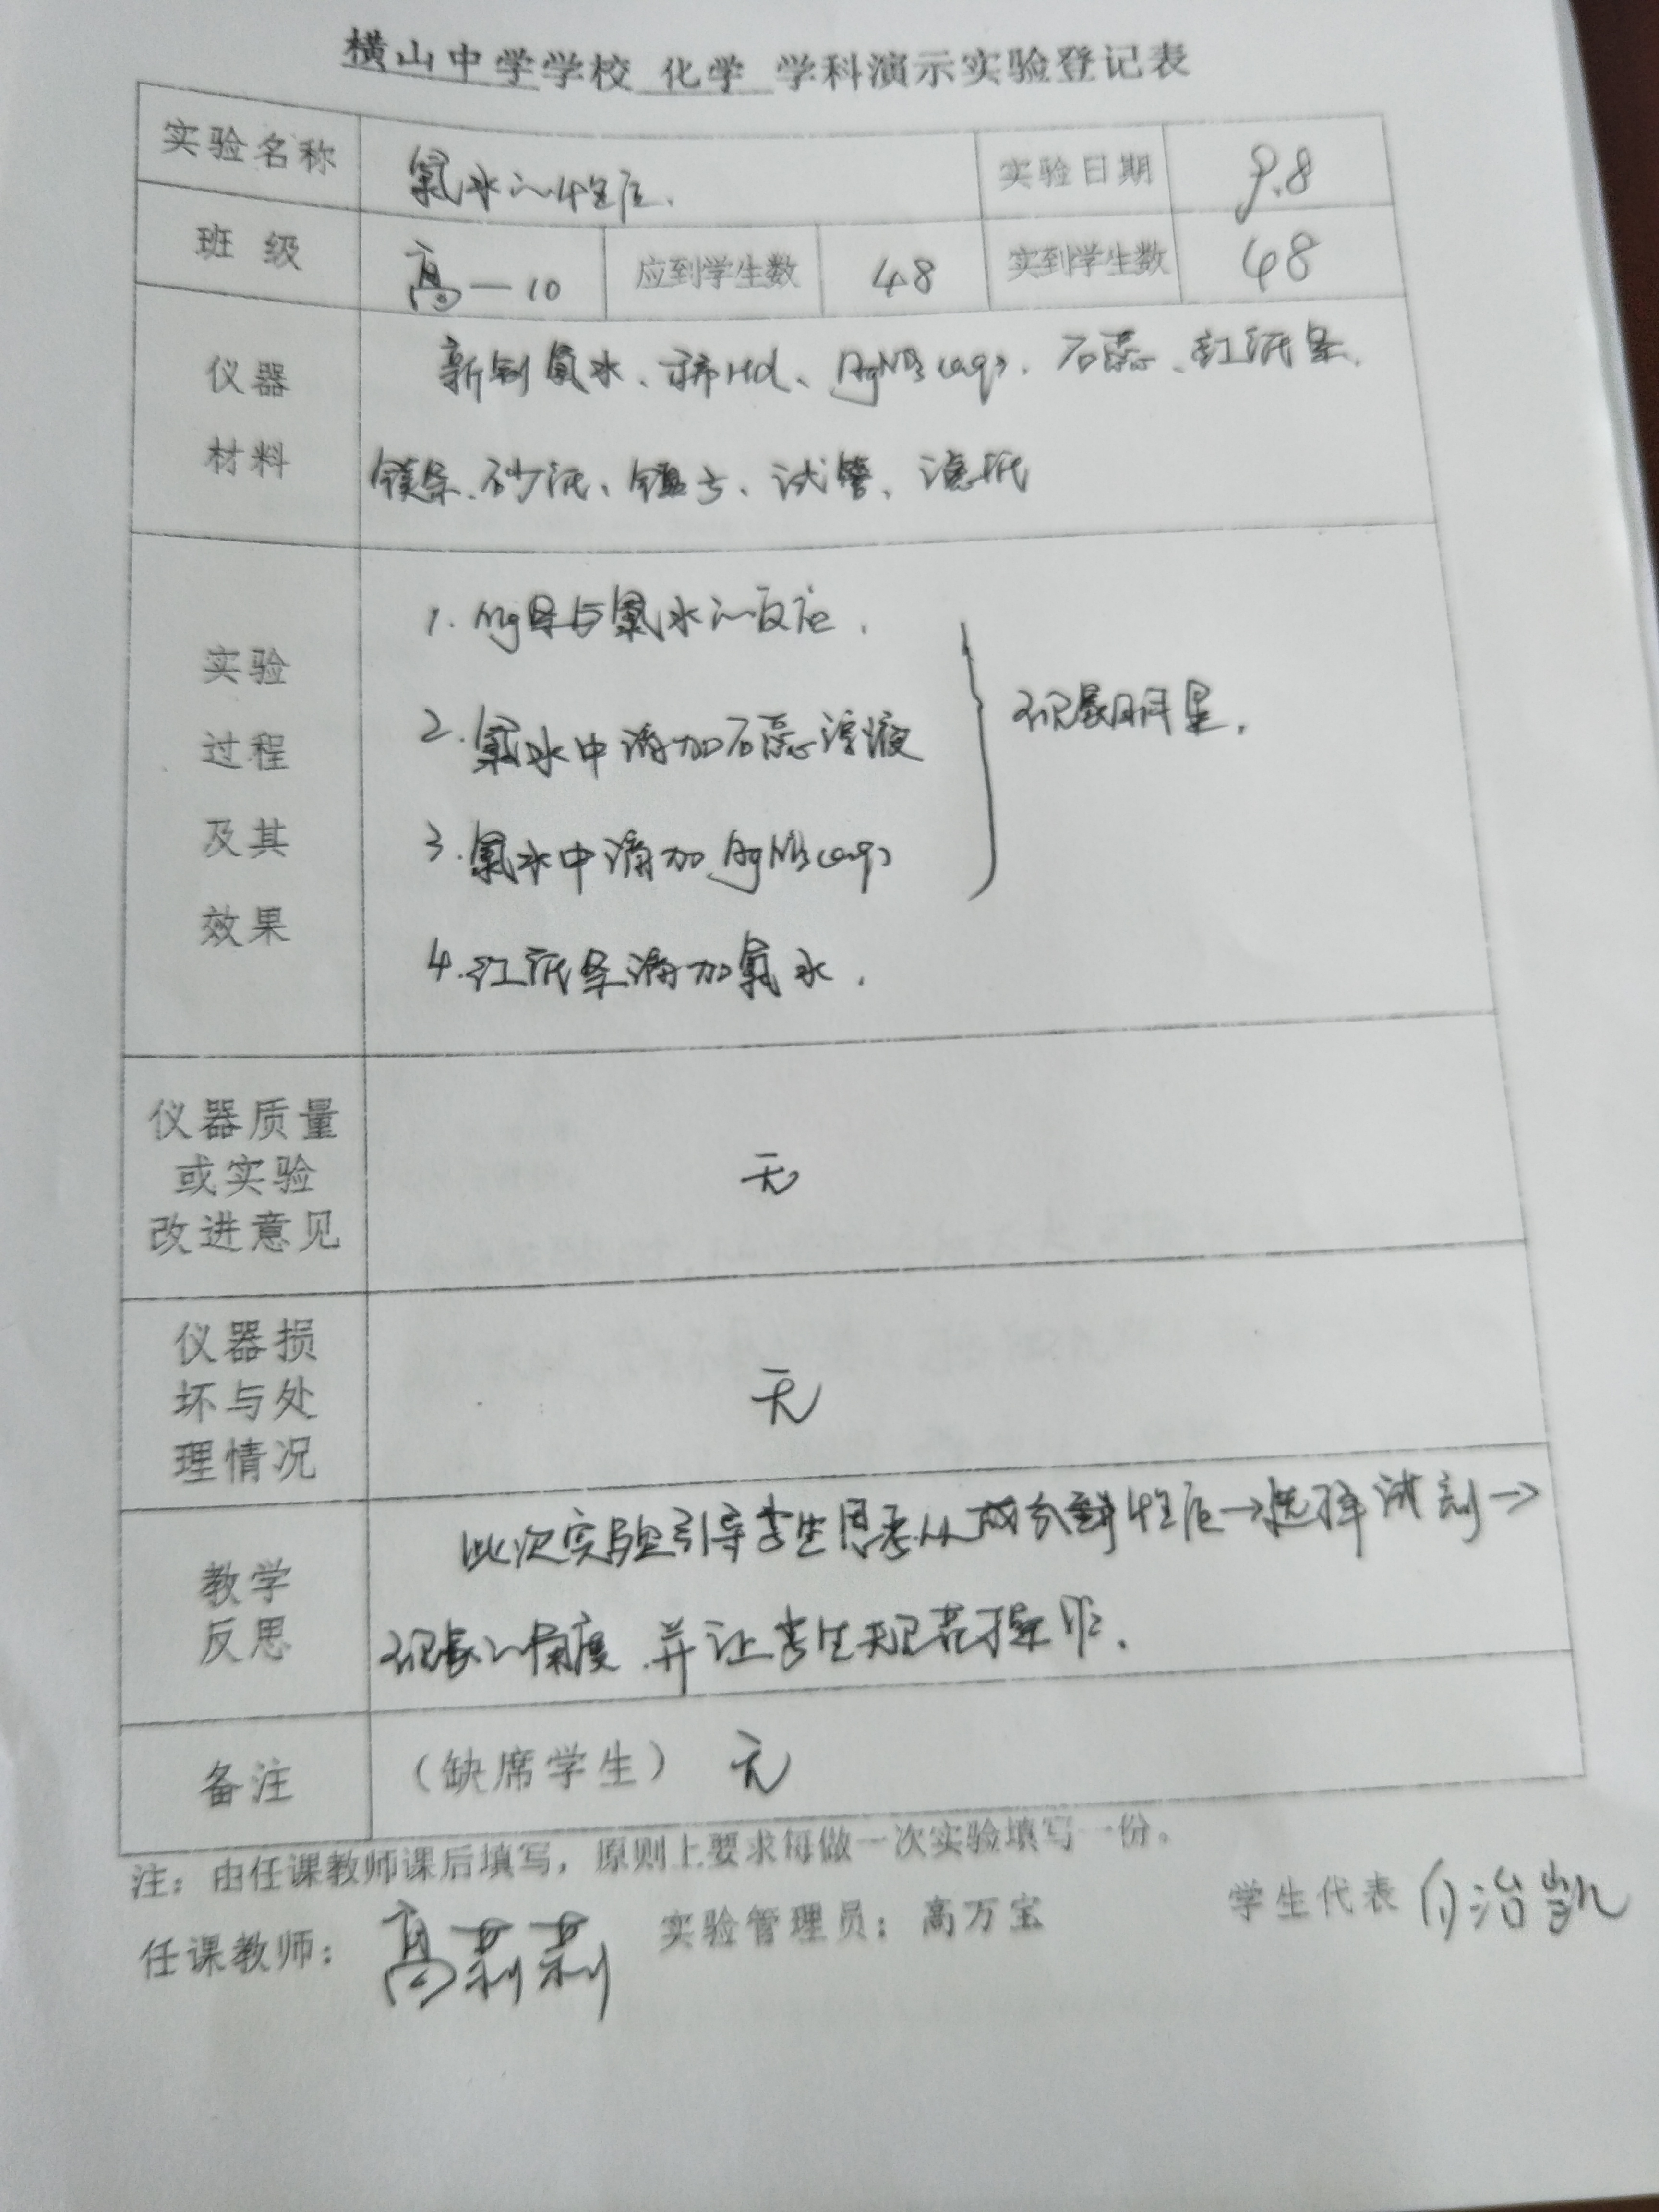 横山中学学校 化学 学科演示实验登记表
实验名称 氯水的性质. 实验日期 9.8
班 级 高一10 应到学生数 48 实到学生数 48
仪器
材料
新制氯水、稀HCl、AgNO3(aq)、石蕊、红纸条、
镁条、砂纸、镊子、试管、滤纸
实验
过程
及其
效果
1. Mg条与氯水的反应.
2. 氯水中滴加石蕊溶液
3. 氯水中滴加AgNO3(aq)
4. 红纸条滴加氯水.
现象明显.
仪器质量
或实验
改进意见
无
仪器损
坏与处
理情况
无
教学
反思
此次实验引导学生思考从成分 性质→选择试剂→
现象的角度.并让学生规范操作.
备注 (缺席学生) 无
注:由任课教师课后填写,原则上要求每做一次实验填写一份。
任课教师: 高莉莉 实验管理员:高万宝 学生代表 白治凯